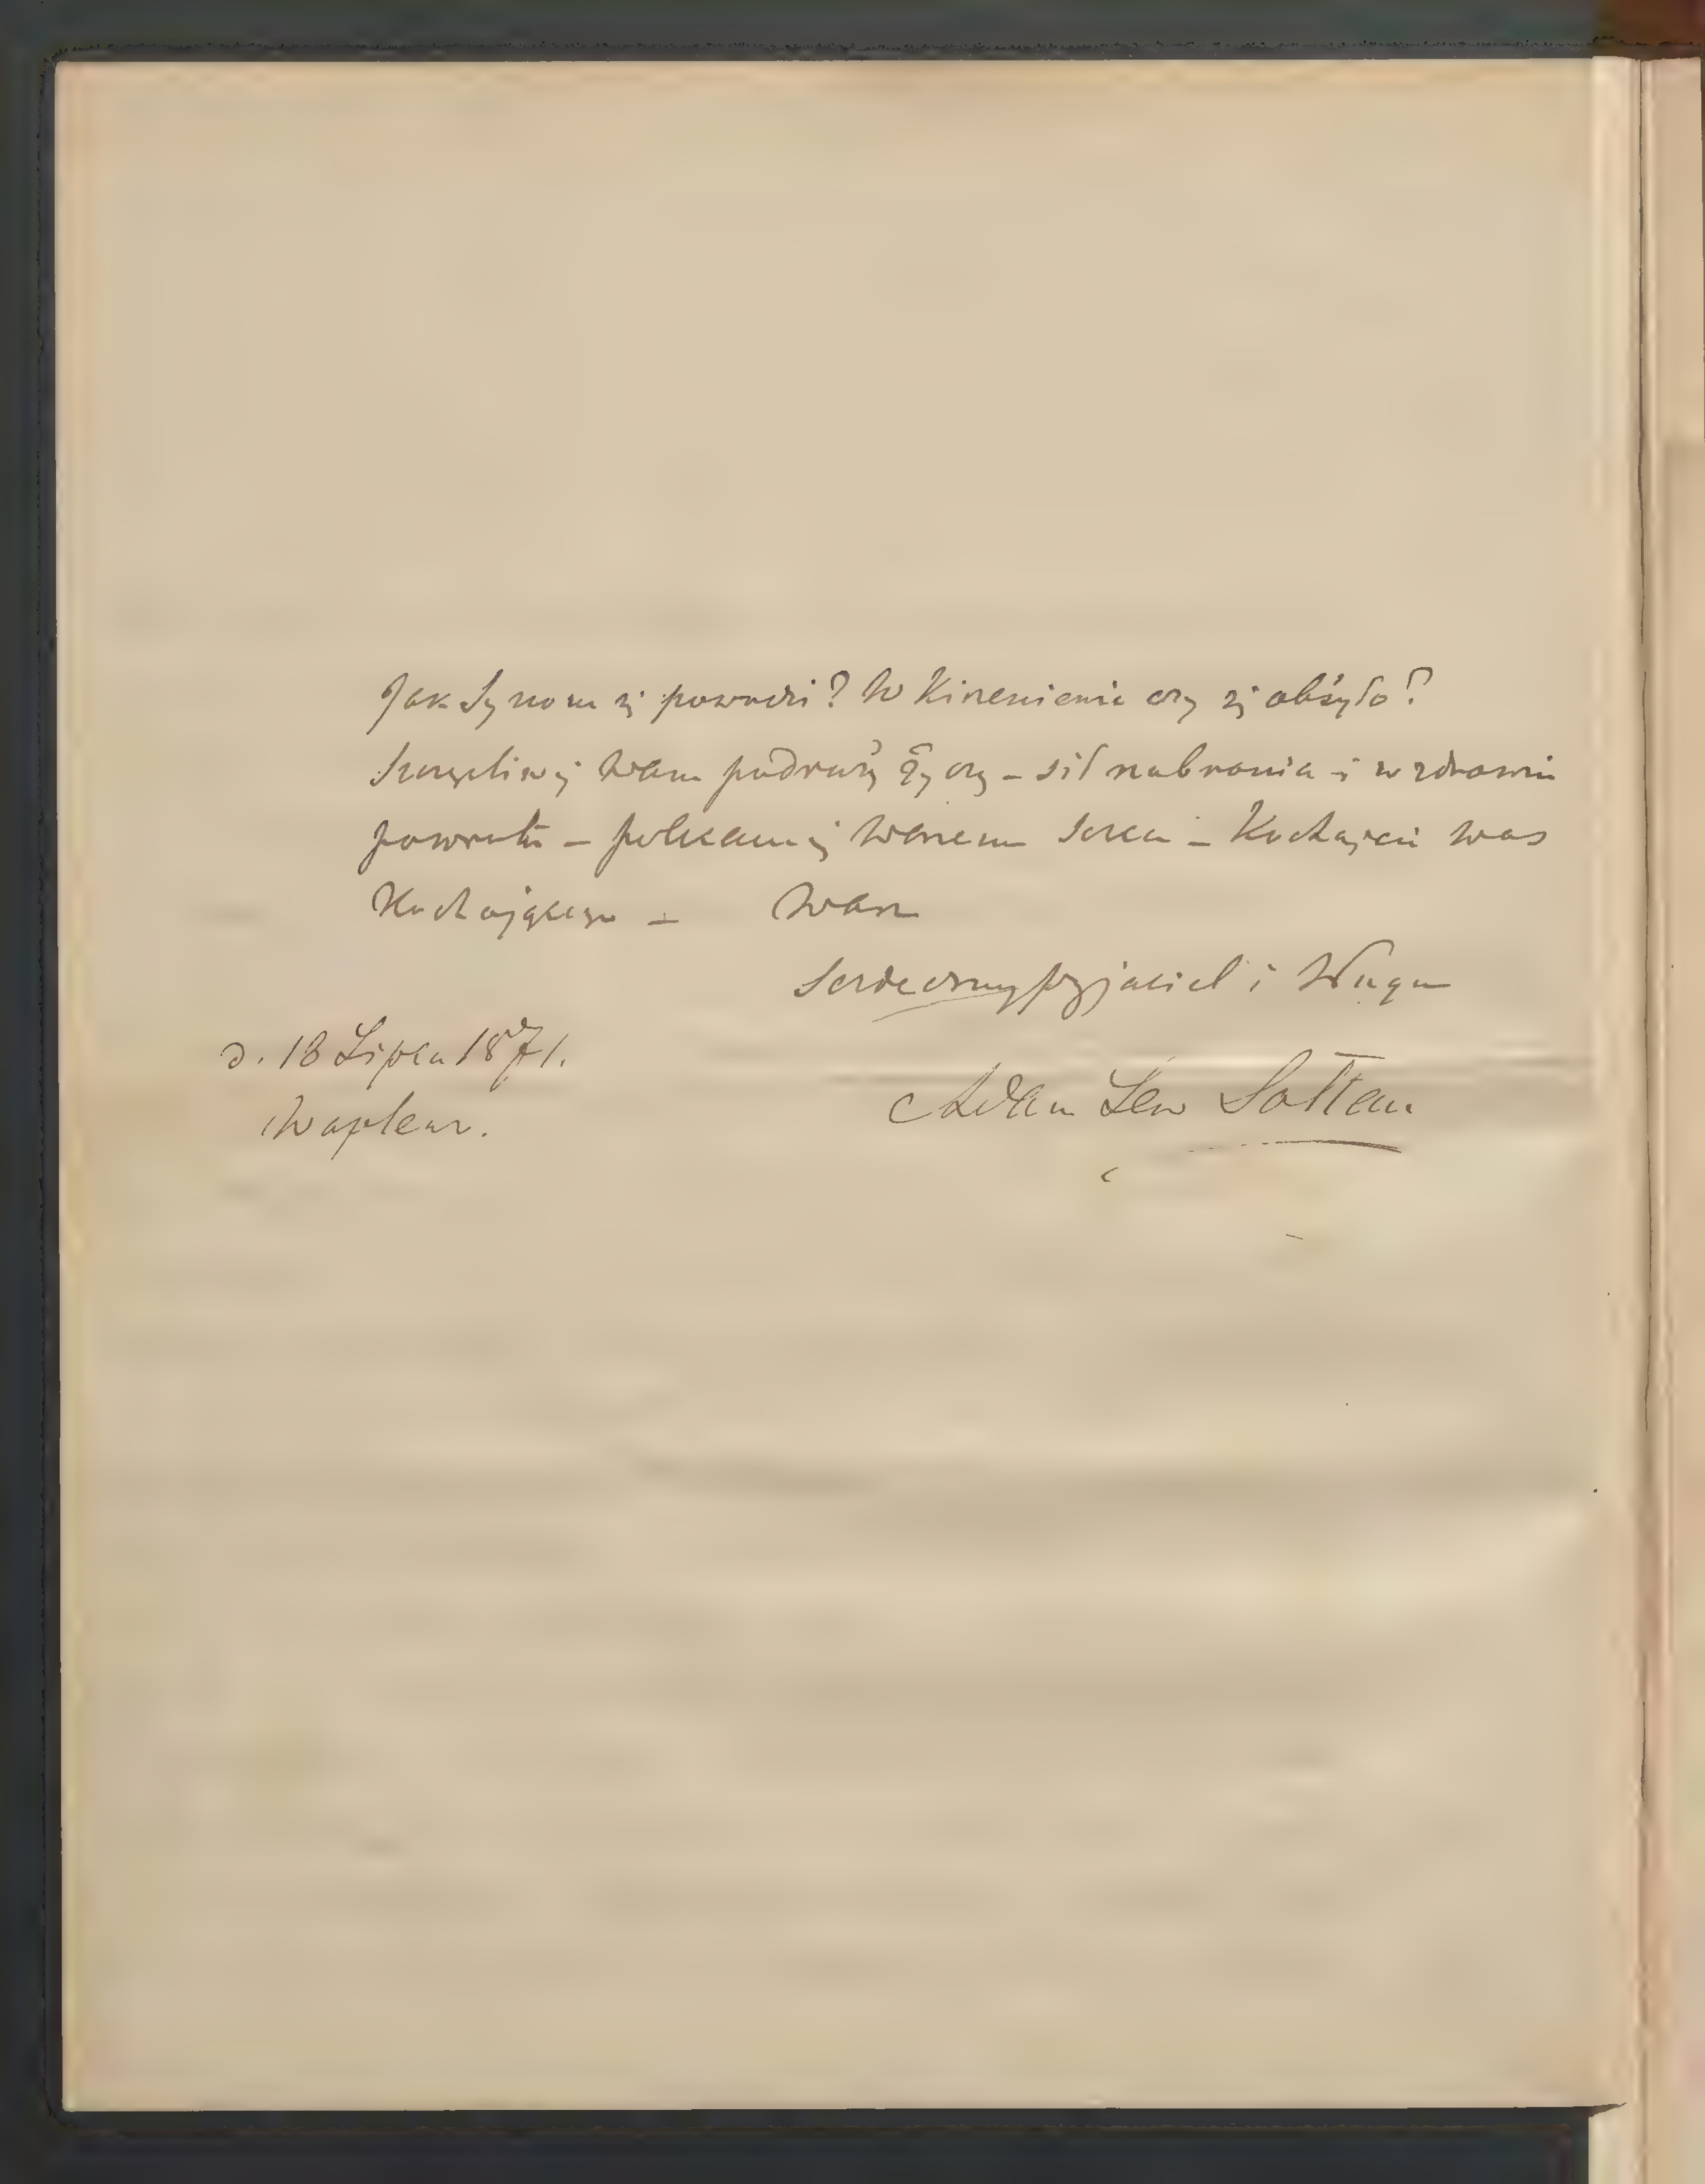 Jak Synom się powodzi? W Kiszenienie czy się obżyło?
Szczęśliwéj Wam podróży życzę – sił nabrania i w zdrowiu
powrotu – polecam się Waszemu sercu – Kochajcie was
Kochającego – Wasz
Serdeczny przyjaciel i Sługa
d. 18 Lipca 1871.
Adam Lew Sołtan.
Waplewo.